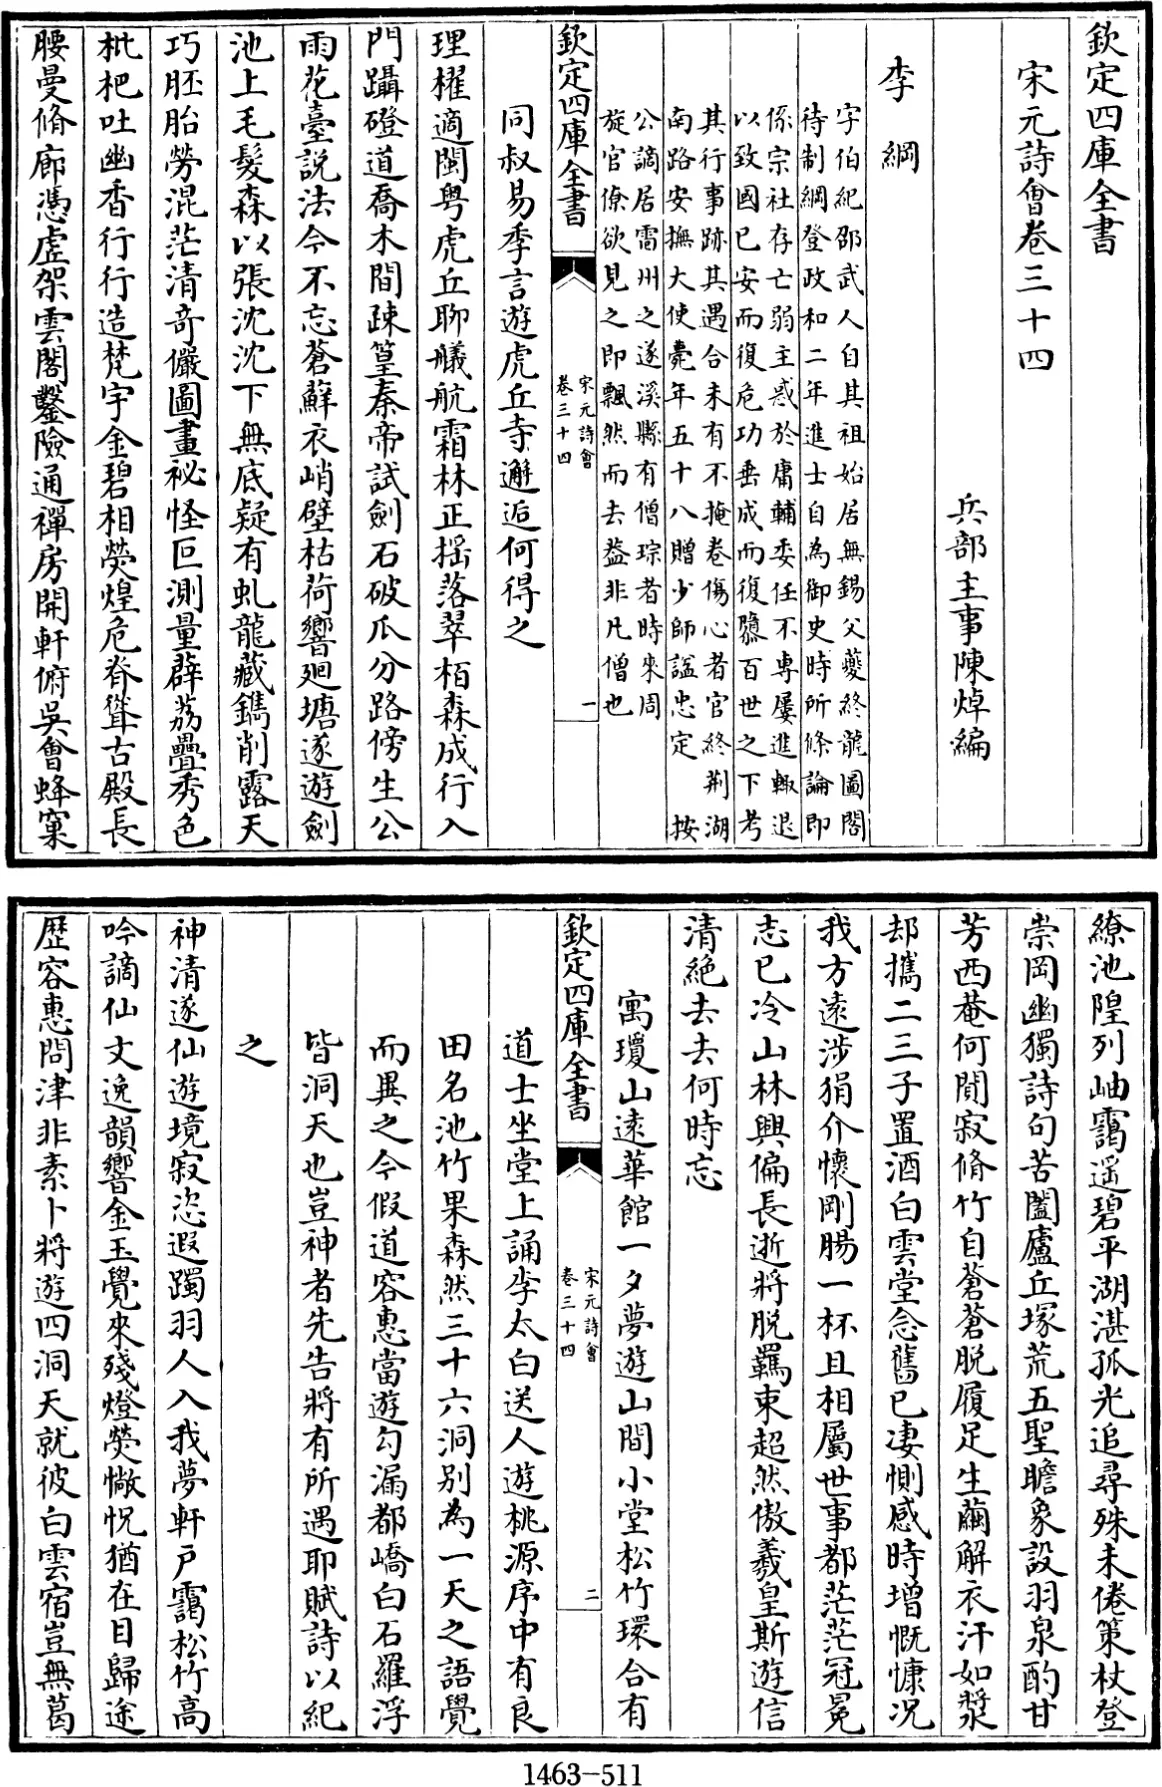 欽定四庫全書
宋元詩㑹卷三十四
兵部主事陳焯編
李綱
字伯紀邵武人自其祖始居無錫父夔終龍圖閣
待制綱登政和二年進士自為御史時所條論即
係宗社存亡弱主惑於庸輔委任不専屢進輙退
以致國已安而復危功垂成而復隳百世之下考
其行事跡其遇合未有不掩卷傷心者官終荆湖
南路安撫大使薨年五十八贈少師諡忠定 按
公謫居雷州之遂溪縣有僧琮者時來周
旋官僚欲見之即飄然而去葢非凡僧也
同叔易季言遊虎丘寺邂逅何得之
欽定四庫全書
宋元詩㑹
卷三十四
一
理櫂適閩粤虎丘聊艤航霜林正揺落翠栢森成行入
門躡磴道喬木間疎篁秦帝試劍石破瓜分路傍生公
雨花臺說法今不忘蒼蘚衣峭壁枯荷響廻塘遂遊劍
池上毛髮森以張沈沈下無底疑有虬龍藏鐫削露天
巧胚胎勞混茫清竒儼圖畫祕怪叵測量薜荔疊秀色
枇杷吐幽香行行造梵宇金碧相熒煌危脊聳古殿長
腰曼脩廊憑虛架雲閣鑿險通禪房開軒俯吳會蜂窠
繚池隍列岫靄遥碧平湖湛孤光追尋殊未倦策杖登
崇岡幽獨詩句苦闔廬丘塚荒五聖瞻象設羽泉酌甘
芳西菴何閴寂脩竹自蒼蒼脱履足生繭解衣汗如漿
却攜二三子置酒白雲堂念舊已凄惻感時增慨慷况
我方遠涉狷介懷剛腸一杯且相屬世事都茫茫冠冕
志已冷山林興偏長逝將脱羈束超然傲羲皇斯遊信
清絶去去何時忘
寓瓊山逺華館一夕夢遊山間小堂松竹環合有
欽定四庫全書
宋元詩㑹
卷三十四
二
道士坐堂上誦李太白送人遊桃源序中有良
田名池竹果森然三十六洞别為一天之語覺
而異之今假道容惠當遊勾漏都嶠白石羅浮
皆洞天也豈神者先告將有所遇耶賦詩以紀
之
神清遂仙遊境寂恣遐躅羽人入我夢軒户靄松竹高
吟謫仙文逸韻響金玉覺來殘燈熒惝怳猶在目歸途
歴容惠問津非素卜將遊四洞天就彼白雲宿豈無葛
1463-511